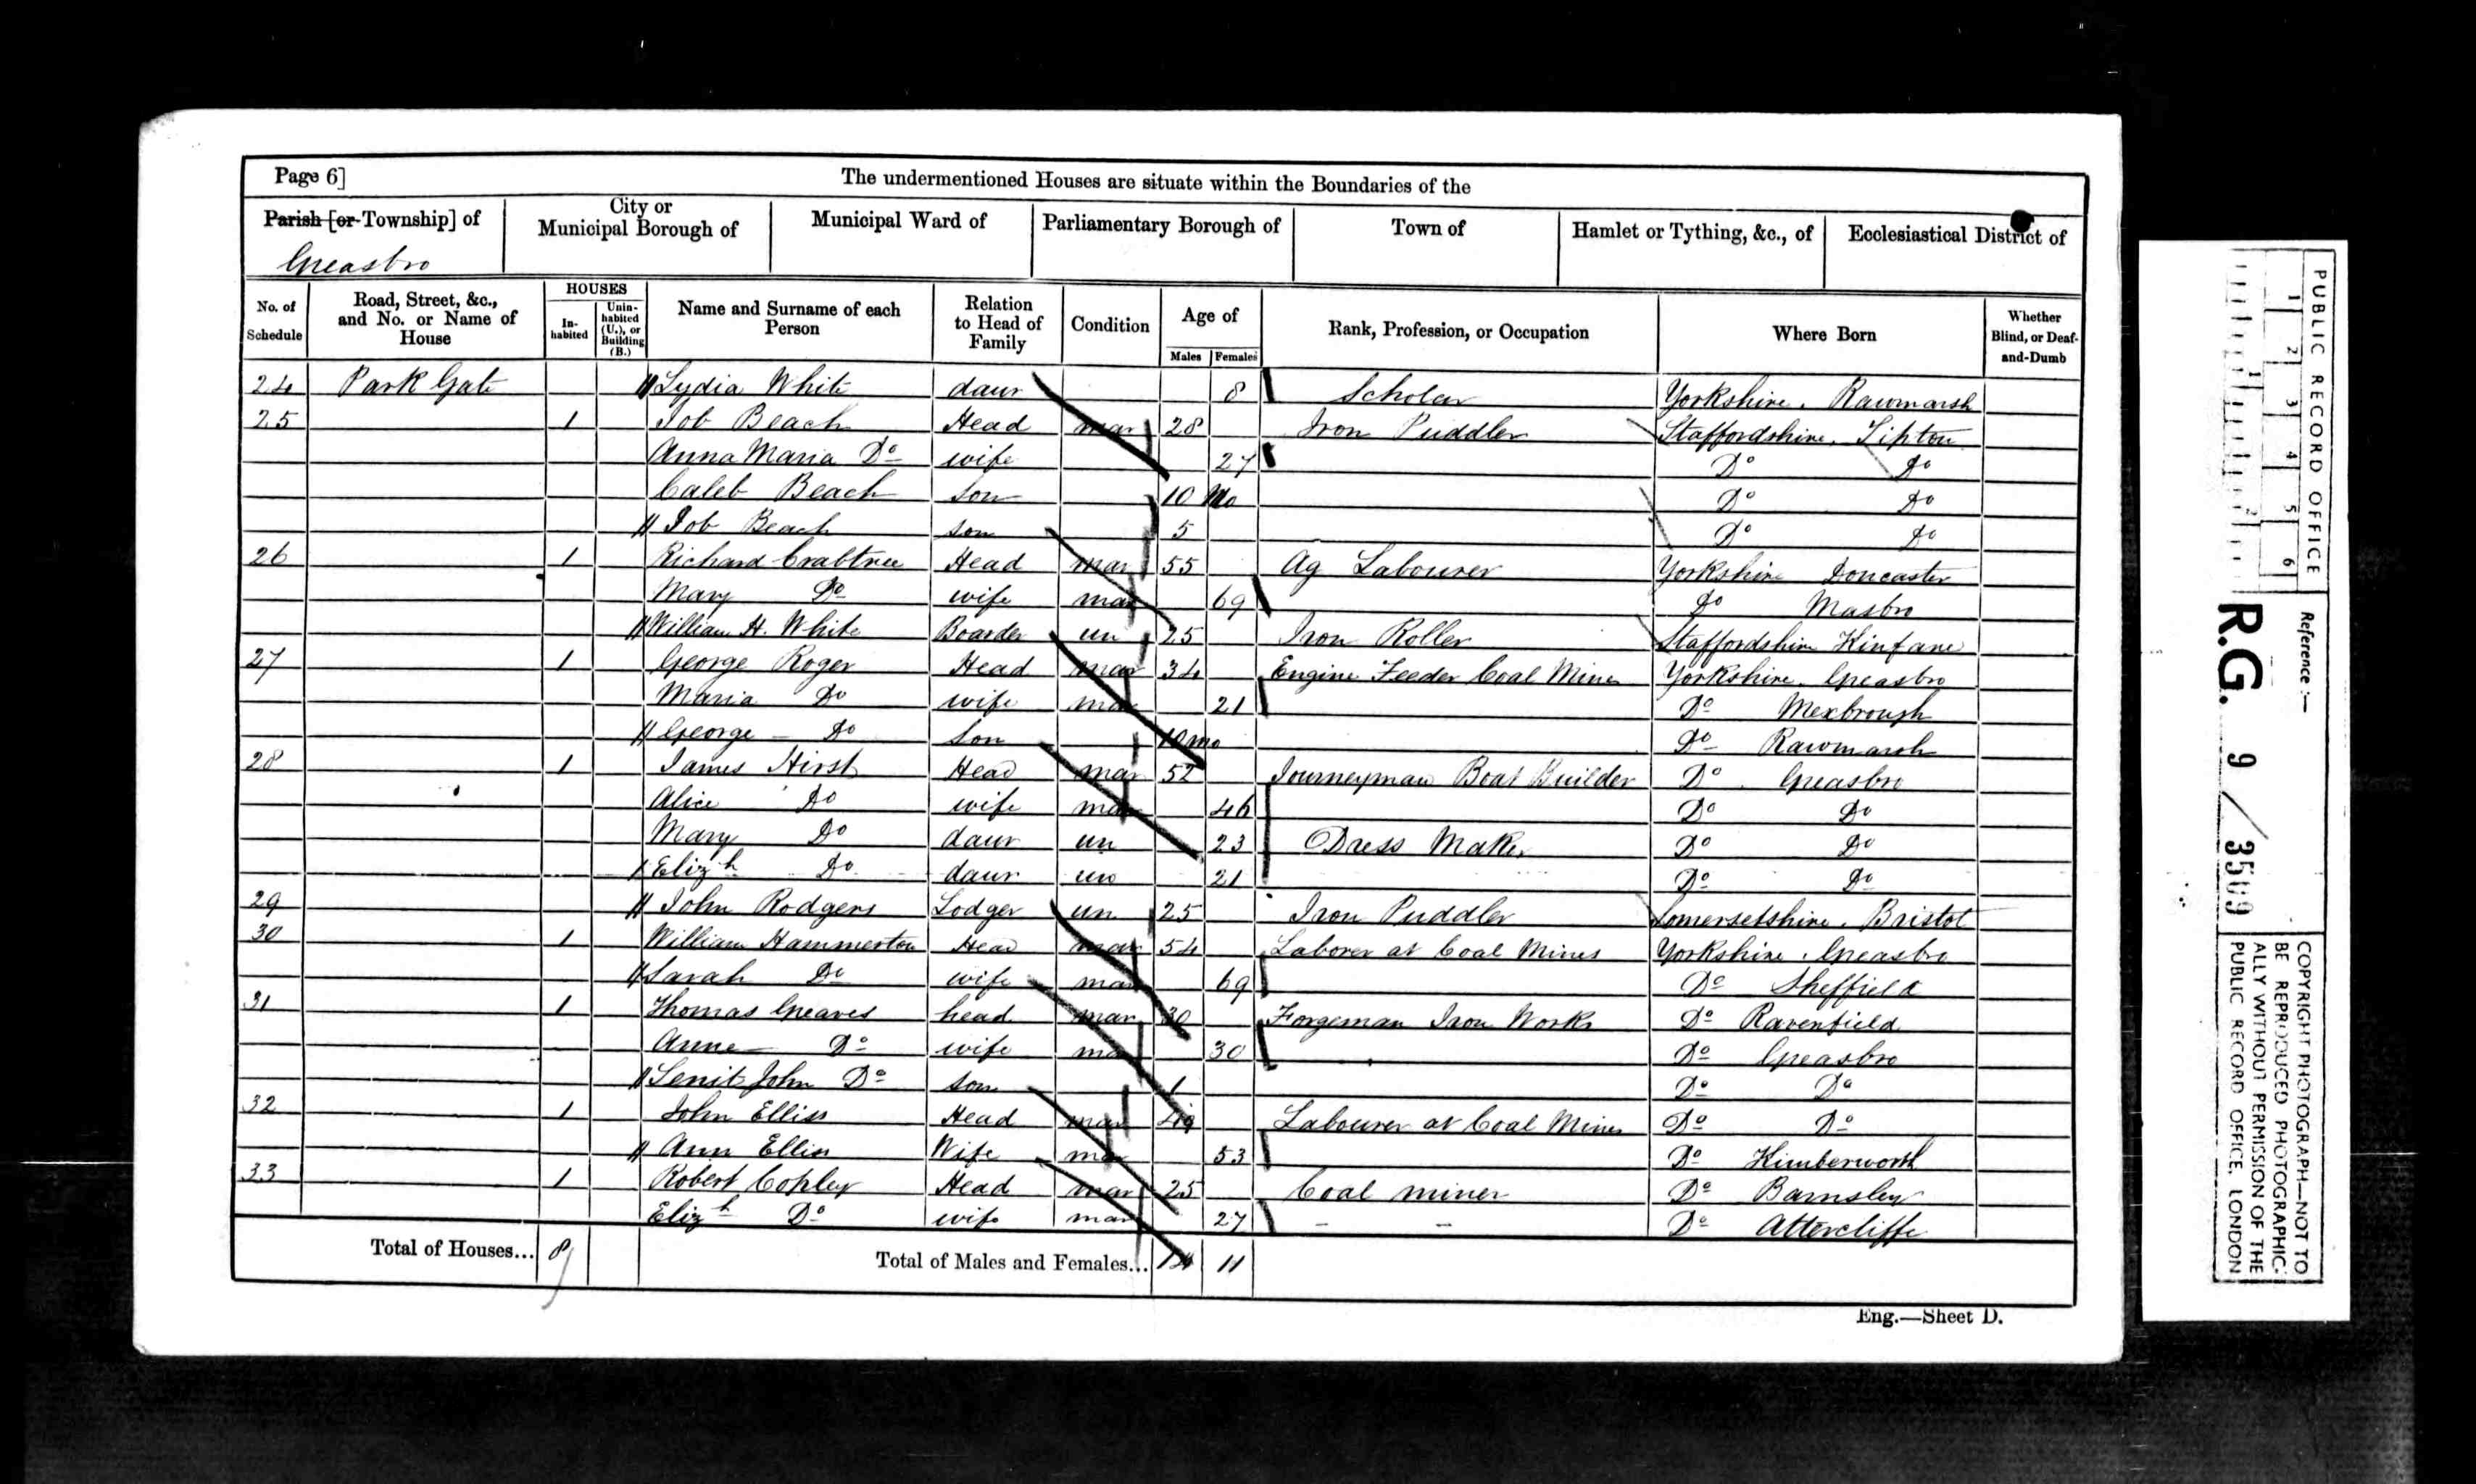 Page 6]
The undermentioned Houses are situate within the Boundaries of the
Parish [or Township] of
City or Municipal Borough of
Municipal Ward of
Parliamentary Borough of
Town of
Hamlet or Tything, &c., of
Ecclesiastical District of
Greasbro
No. of Schedule
Road, Street, &c., and No. or Name of House
HOUSES
In-habited
Unin-habited (U.), or Building (B.)
Name and Surname of each Person
Relation to Head of Family
Condition
Age of
Males
Females
Rank, Profession, or Occupation
Where Born
Whether Blind, or Deaf-and-Dumb
24 Park Gate Lydia White daur 8 Scholar Yorkshire. Rawmarsh
25 1 Job Beach Head mar 28 Iron Puddler Staffordshire. Tipton
Anna Maria Do wife 27 Do Do
Caleb Beach son 10 Mo Do Do
Job Beach son 5 Do Do
26 1 Richard Crabtree Head mar 55 Ag Labourer Yorkshire Doncaster
Mary Do wife mar 69 Do Masbro
William H. White Boarder un 25 Iron Roller Staffordshire Kinfare
27 1 George Roger Head mar 34 Engine Feeder Coal Mines Yorkshire. Greasbro
Maria Do wife mar 21 Do Mexbrough
George Do Son 10 mo Do Rawmarsh
28 1 James Hirst Head mar 52 Journeyman Boat Builder Do Greasbro
Alice Do wife mar 46 Do Do
Mary Do daur un 23 Dress Maker Do Do
Elizh Do daur un 21 Do Do
29 John Rodgers Lodger un 25 Iron Puddler Somersetshire. Bristol
30 1 William Hammerton Head mar 54 Laborer at Coal Mines Yorkshire. Greasbro
Sarah Do wife mar 69 Do Sheffield
31 1 Thomas Greaves head mar 30 Forgeman Iron Works Do Ravenfield
Anne Do wife mar 30 Do Greasbro
John Do son 1 Do Do
32 1 John Elliss Head mar 49 Labourer at Coal Mines Do Do
Ann Elliss Wife mar 53 Do Kimberworth
33 1 Robert Copley Head mar 25 Coal miner Do Barnsley
Elizh Do wife mar 27 - - Do Attercliffe
Total of Houses... 8
Total of Males and Females... 14 11
Eng.—Sheet D.
PUBLIC RECORD OFFICE
1 2 3 4 5 6
1 2
Reference:—
R.G. 9 / 3509
COPYRIGHT PHOTOGRAPH—NOT TO
BE REPRODUCED PHOTOGRAPHIC-
ALLY WITHOUT PERMISSION OF THE
PUBLIC RECORD OFFICE, LONDON